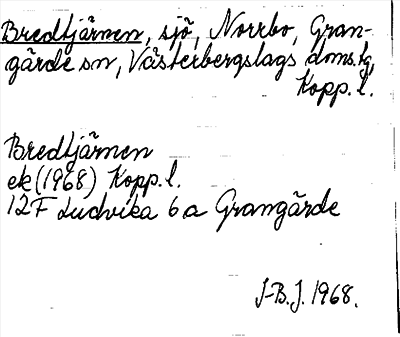 Bredtjärnen, sjö, Norrbo, Gran-
gärde sn, Västerbergslags doms.tg,
Kopp. l.
Bredtjärnen
ek (1968) Kopp. l.
12F Ludvika 6a Grangärde
J-B.J. 1968.